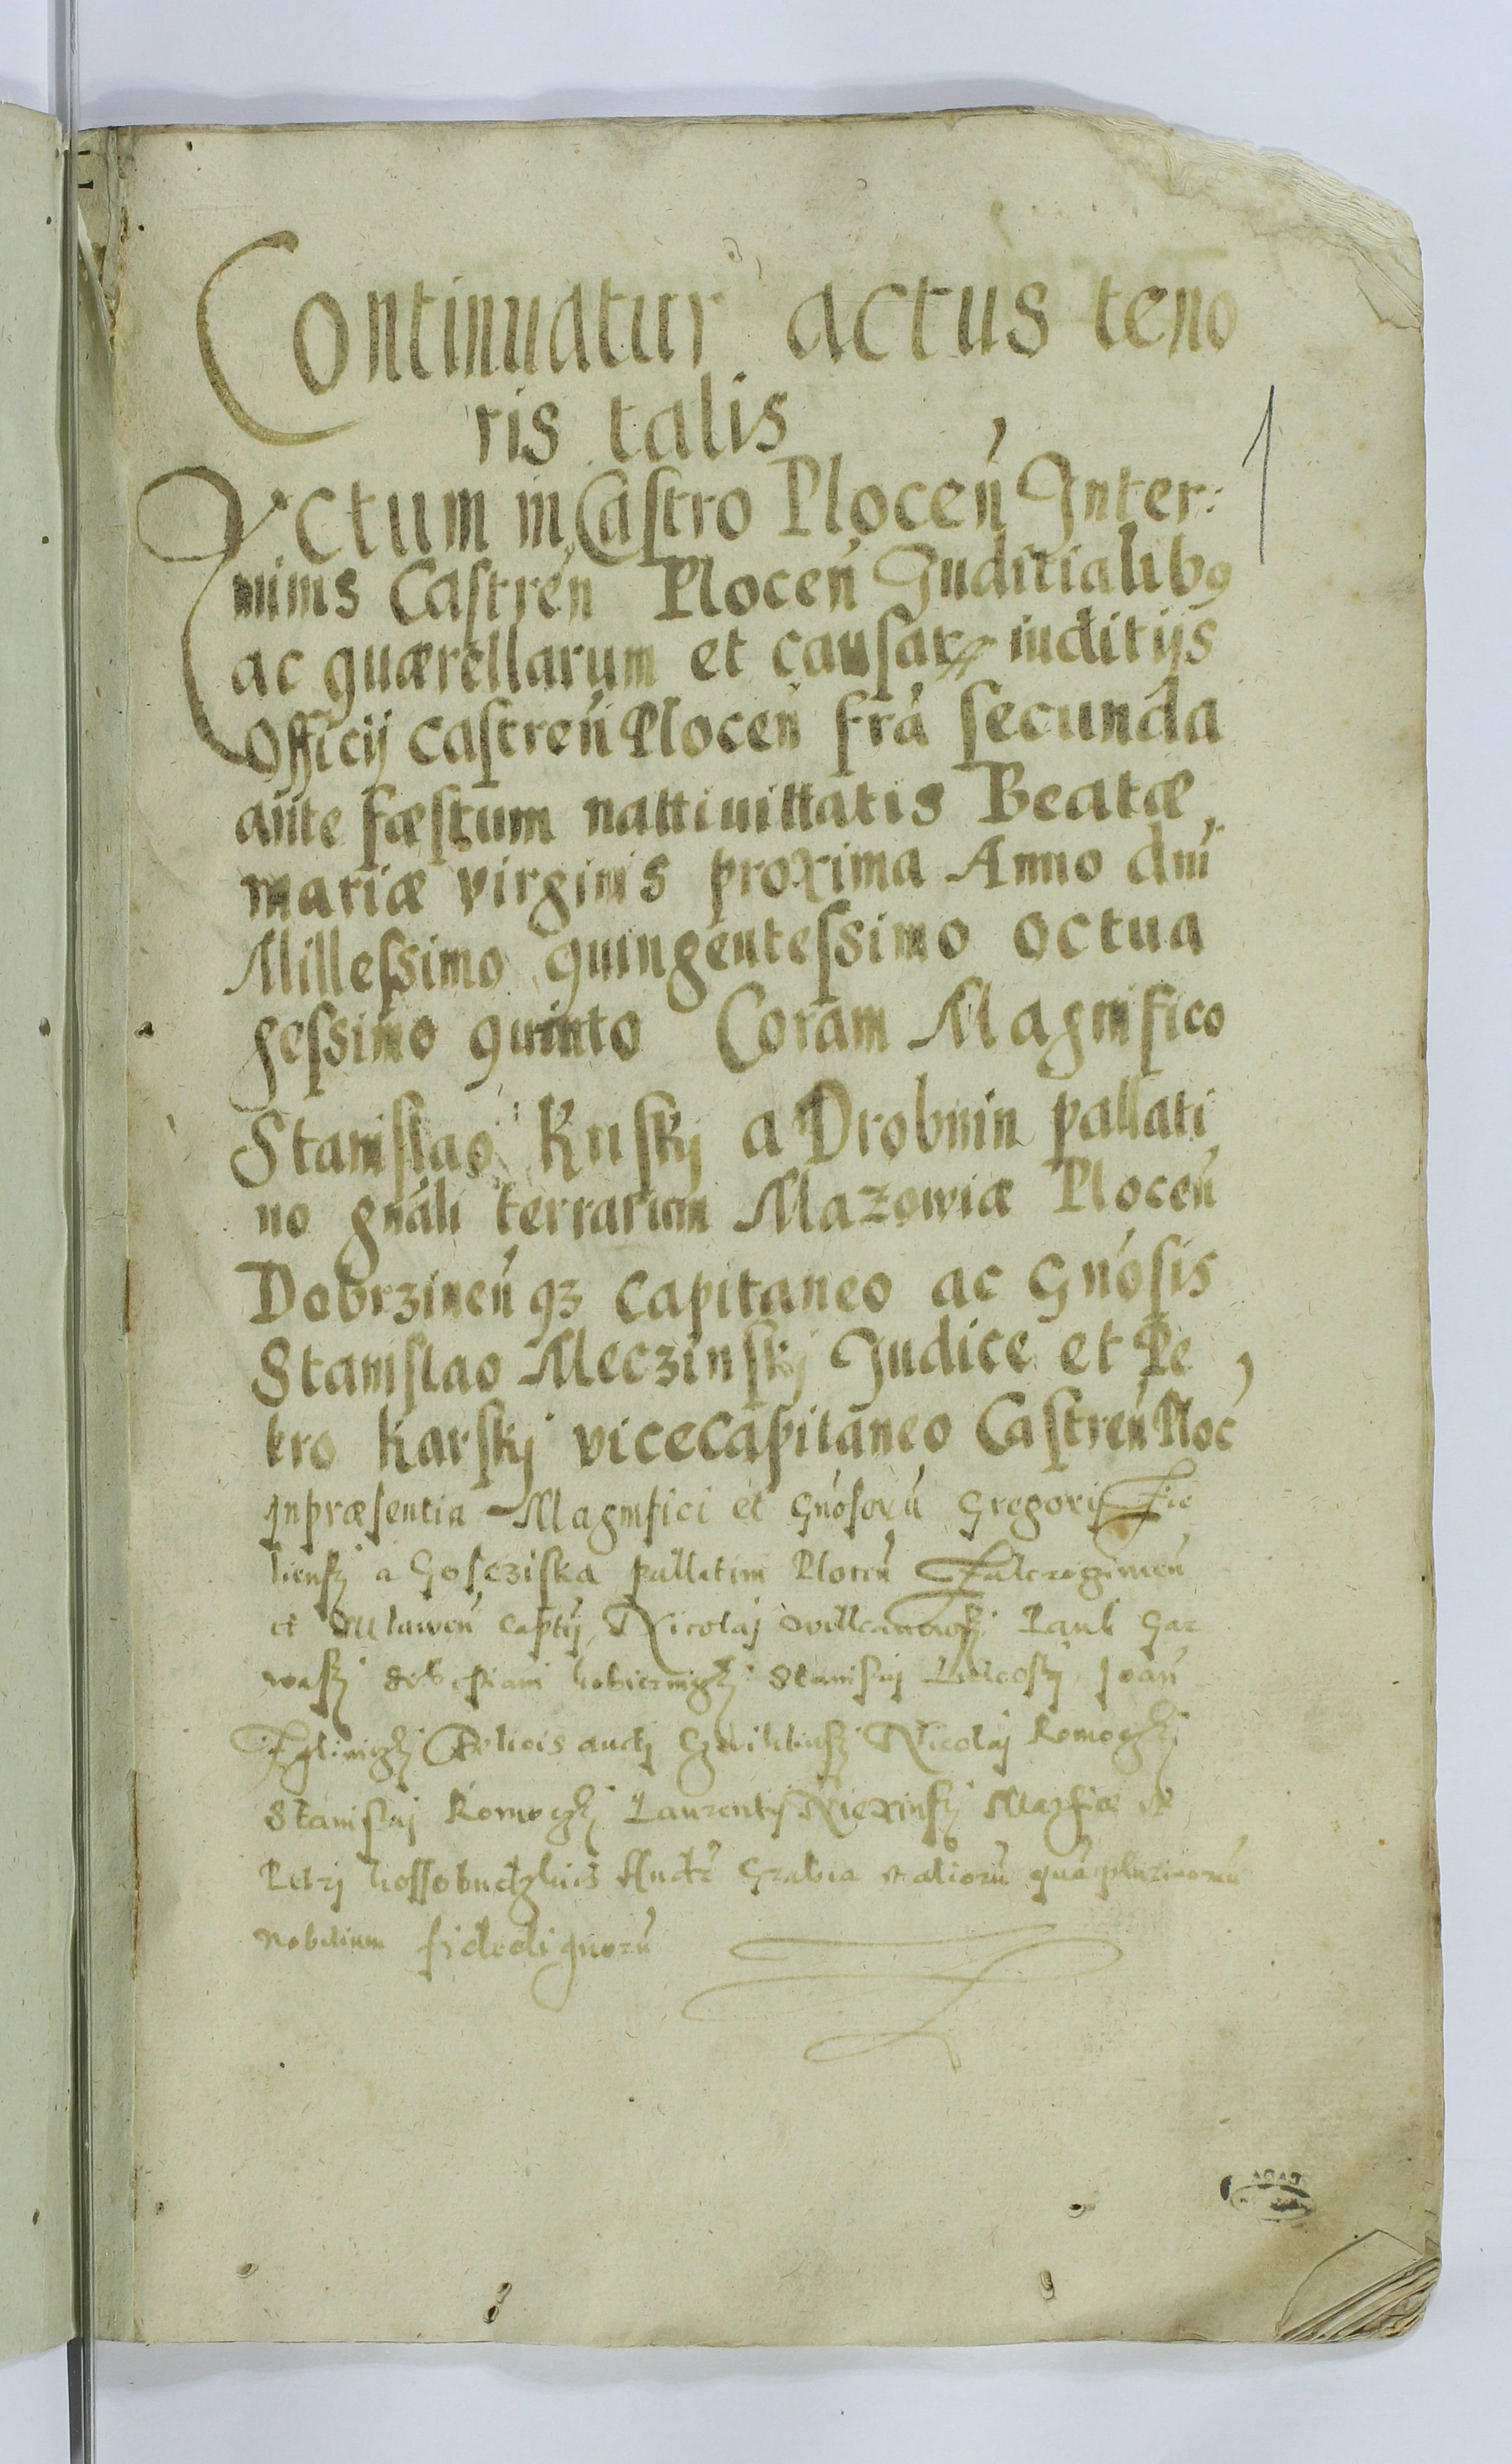 Continuatur actus teno
ris talis
Actum in Castro Plocen̄ Inter:
minis Castren̄ Plocen̄ Juditialibꝯ
ac quærellarum et causarꝝ iuditijs
Officij castren̄ Plocen̄ fr̄a secunda
ante fæstum nattiuittatis Beatæ
mariæ virginis proxima Anno dn̄i
Millessimo quingentessimo octua
gessimo quinto Coram Magnifico
Stanislao Krſkj a Drobnin pallati
no gnāli terrarum Mazowiæ Plocen̄
Dobrzinen̄ qꝫ capitaneo ac Gnōsis
Stanislao Meczinskj Judice et Pe
tro Karskj vicecapitaneo Castren̄ Ploc̄
Inpræsentia Magnifici et Gnōsorū Gregorij Zie
liensȝ a Gosziska pallatini Plocen̄
et Mlawen̄ Captij Nicolaj Pauli Gar
wasȝ Stanislaj Joan̄
Felicis Nicolaj Komoȝ
Stanislaj Komoȝ Laurentij et
Petrj Grabia et aliorū quāplurimorū
nobilium fidedignorū
1